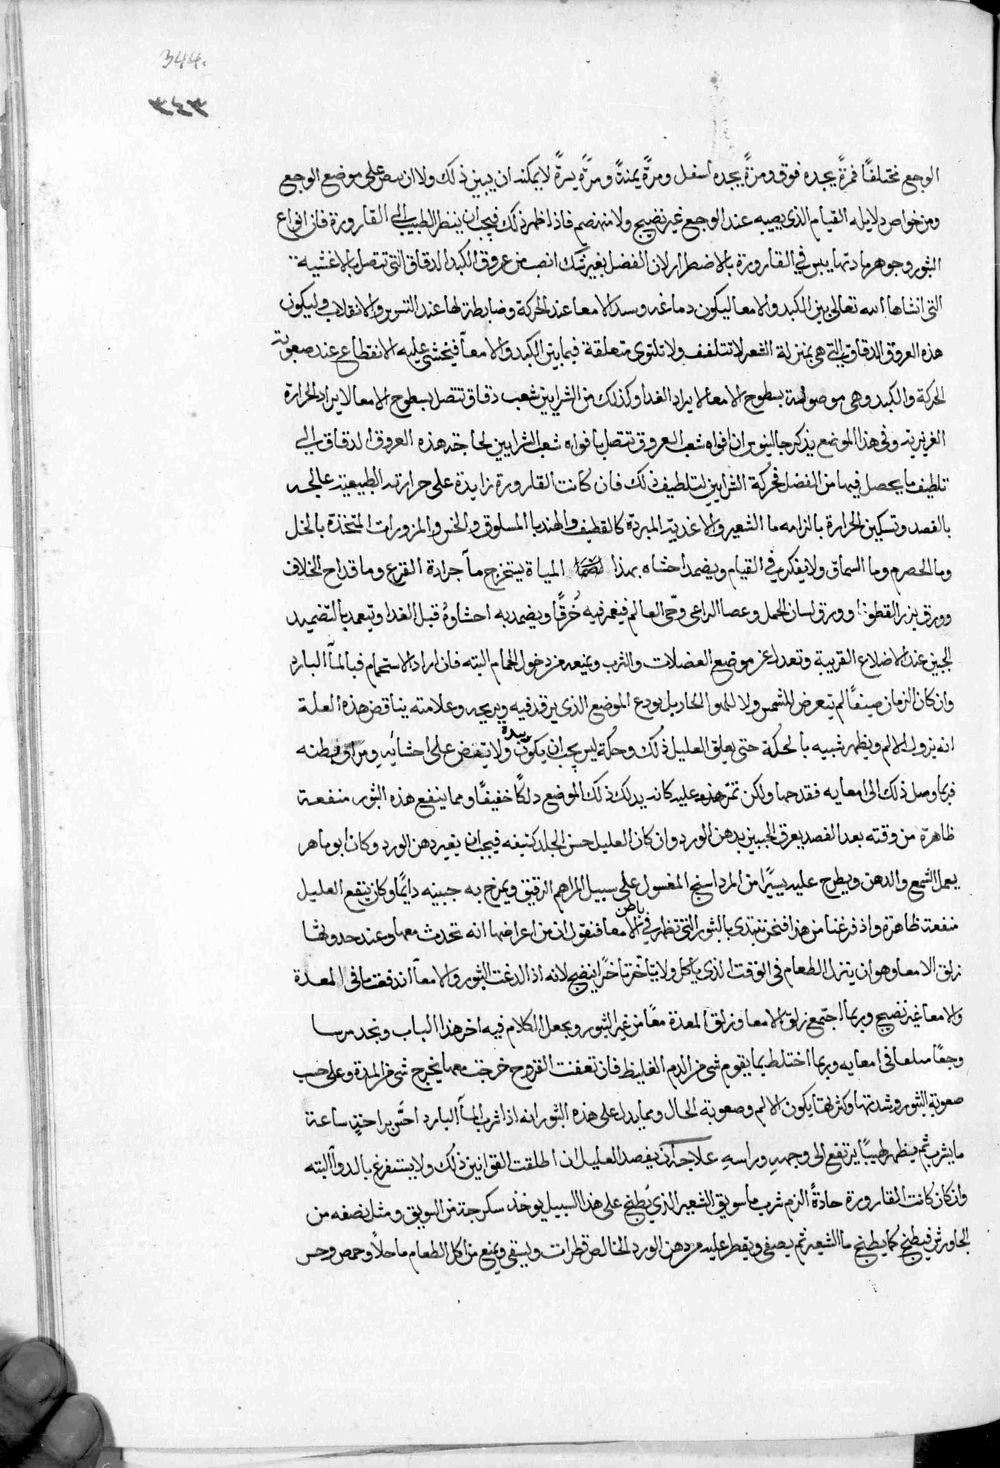 344.
٣٤٣
الوجع مختلفًا فمرةً يجده فوق ومرةً يجده اسفل ومرةً يمنةً ومرةً يسرةً لا يمكنه ان يبين ذلك ولا ان على موضع الوجع
ومن خواص دلايله القيام الذى يصيبه عند الوجع غير نضيج ولا منهضم فاذا ظهر ذلك فيجب ان ينظر الطبيب الى القارورة فان انواع
البثور وجوهر مادتها يبين في القارورة بالاضطرار لان الفضل بغير شك انصب من عروق الكبد الدقاق التى تتصل بالاغشية
التى انشاها الله تعالى بين الكبد والامعا ليكون وسد الامعا عند الحركة وضابطة لها عند والانقلاب وليكون
هذه العروق الدقاق التى هى بمنزلة الشعر لا تتلفف ولا تلتوى متعلقة فيما بين الكبد والامعآ فيخشى عليه الانقطاع عند صعوبة
الحركة والكبد وهى موصولة بسطوح الامعا لايراد الغدا وكذلك من الشرايين شعب دقاق تتصل بسطوح الامعا لايراد الحرارة
الغريزية وفى هذا الموضع يذكر جالينوس ان افواه شعب العروق تتصل بافواه شعب الشرايين لحاجة هذه العروق الدقاق الى
تلطيف ما يحصل فيها من الفضل فحركة الشرايين لتلطيف ذلك فان كانت القارورة زايدة على حرارته الطبيعية عالجه
بالفصد وتسكين الحرارة بالزامه ما الشعير والاغدية المبردة كالقطيف والهندبا المسلوق والخس والمزورات المتخذة بالخل
وما الحصرم وما السماق ولا يفكر فى القيام ويضمد احشاه بهذا المياة يستخرج مآ جرادة القرع وما قداح الخلاف
وورق بزر القطونا وورق لسان الحمل وعصا الراعى وحى العالم فيغمر فيه خُرقًا ويضمد به احشاوهُ قبل الغدا ويتعمد بالتضميد
الجبين عند الاضلاع القريبة وتعدا عن موضع العضلات والثرب ويمنعه من دخول الحمام البته فان اراد الاستحمام فبالمآ البارد
وان كان الزمان صيفًا لم يتعرض للشمس ولا للهوا الحار بل يودع الموضع الذى يرقد فيه ويريحه وعلامته يناقض هذه العلة
انه يزول الالم ويظهر شبيه بالحكة حتى يعلق العليل ذلك وحكة ليس يجب ان يكون شديدة ولا يقبض على احشائه ومراق بطنه
فربما وصل ذلك الى امعايه فقدحها ولكن تمر يده عليه كانه يدلك ذلك الموضع دلكًا خفيفًا ومما ينفع هذه البثور منفعة
ظاهرة من وقته بعد الفصد يعرق الجبين بدهن الورد وان كان العليل خشن الجلد كثيفه فيجب ان تغير دهن الورد وكان ابو ماهر
يعمل الشمع والدهن ويطرح عليه يسيرًا من المرداسنج المغسول على سبيل المراهم الرقيق ويمرخ به جبينه دايمًا وكان ينتفع العليل
منفعة ظاهرة واذ فرغنا من هذا فنحن نبتدى بالبثور التى تظهر فى باطن الامعا فنقول ان من اعراضها انه تحدث معها وعند حدوثها
زلق الامعا وهو ان ينزل الطعام فى الوقت الذى ياكل ولا يتاخر تاخرًا ينضج لانه اذا لدغت البثور والامعآ اندفعت ما فى المعدة
والامعا غير نضيج وربما اجتمع زلق الامعا وزلق المعدة معًا من غير البثور ويجعل الكلام فيه اخر هذا الباب ونجد
وجعًا فى امعايه وربما اختلط بما يقوم شى من الدم الغليظ فان تعفنت القروح خرجت معها يخرج شى من المدة وعلى حسب
صعوبة البثور وشدتها وكثرتها يكون الالم وصعوبة الحال ومما يدل على هذه البثور انه اذا شرب المآ البارد احس براحةٍ ساعة
ما يشرب ثم يظهر لهيبًا يرتفع الى وجههِ وراسهِ علاجه ان يفصد العليل ان اطلقت القوانين ذلك ولا يستفرغ بالدوآ البته
وان كان كانت القارورة حادةً الزم شرب ما سويق الشعير الذي يُطبخ على هذا السبيل يوخذ سكرجة من السويق ومثل نصفه من
الجاورش فيطبخ كما يطبخ ما الشعير ثم يصفى ويقطر عليه من دهن الورد الخالص قطرات ويسقى ويمنع من اكل الطعام ما خلا وحمص وخس